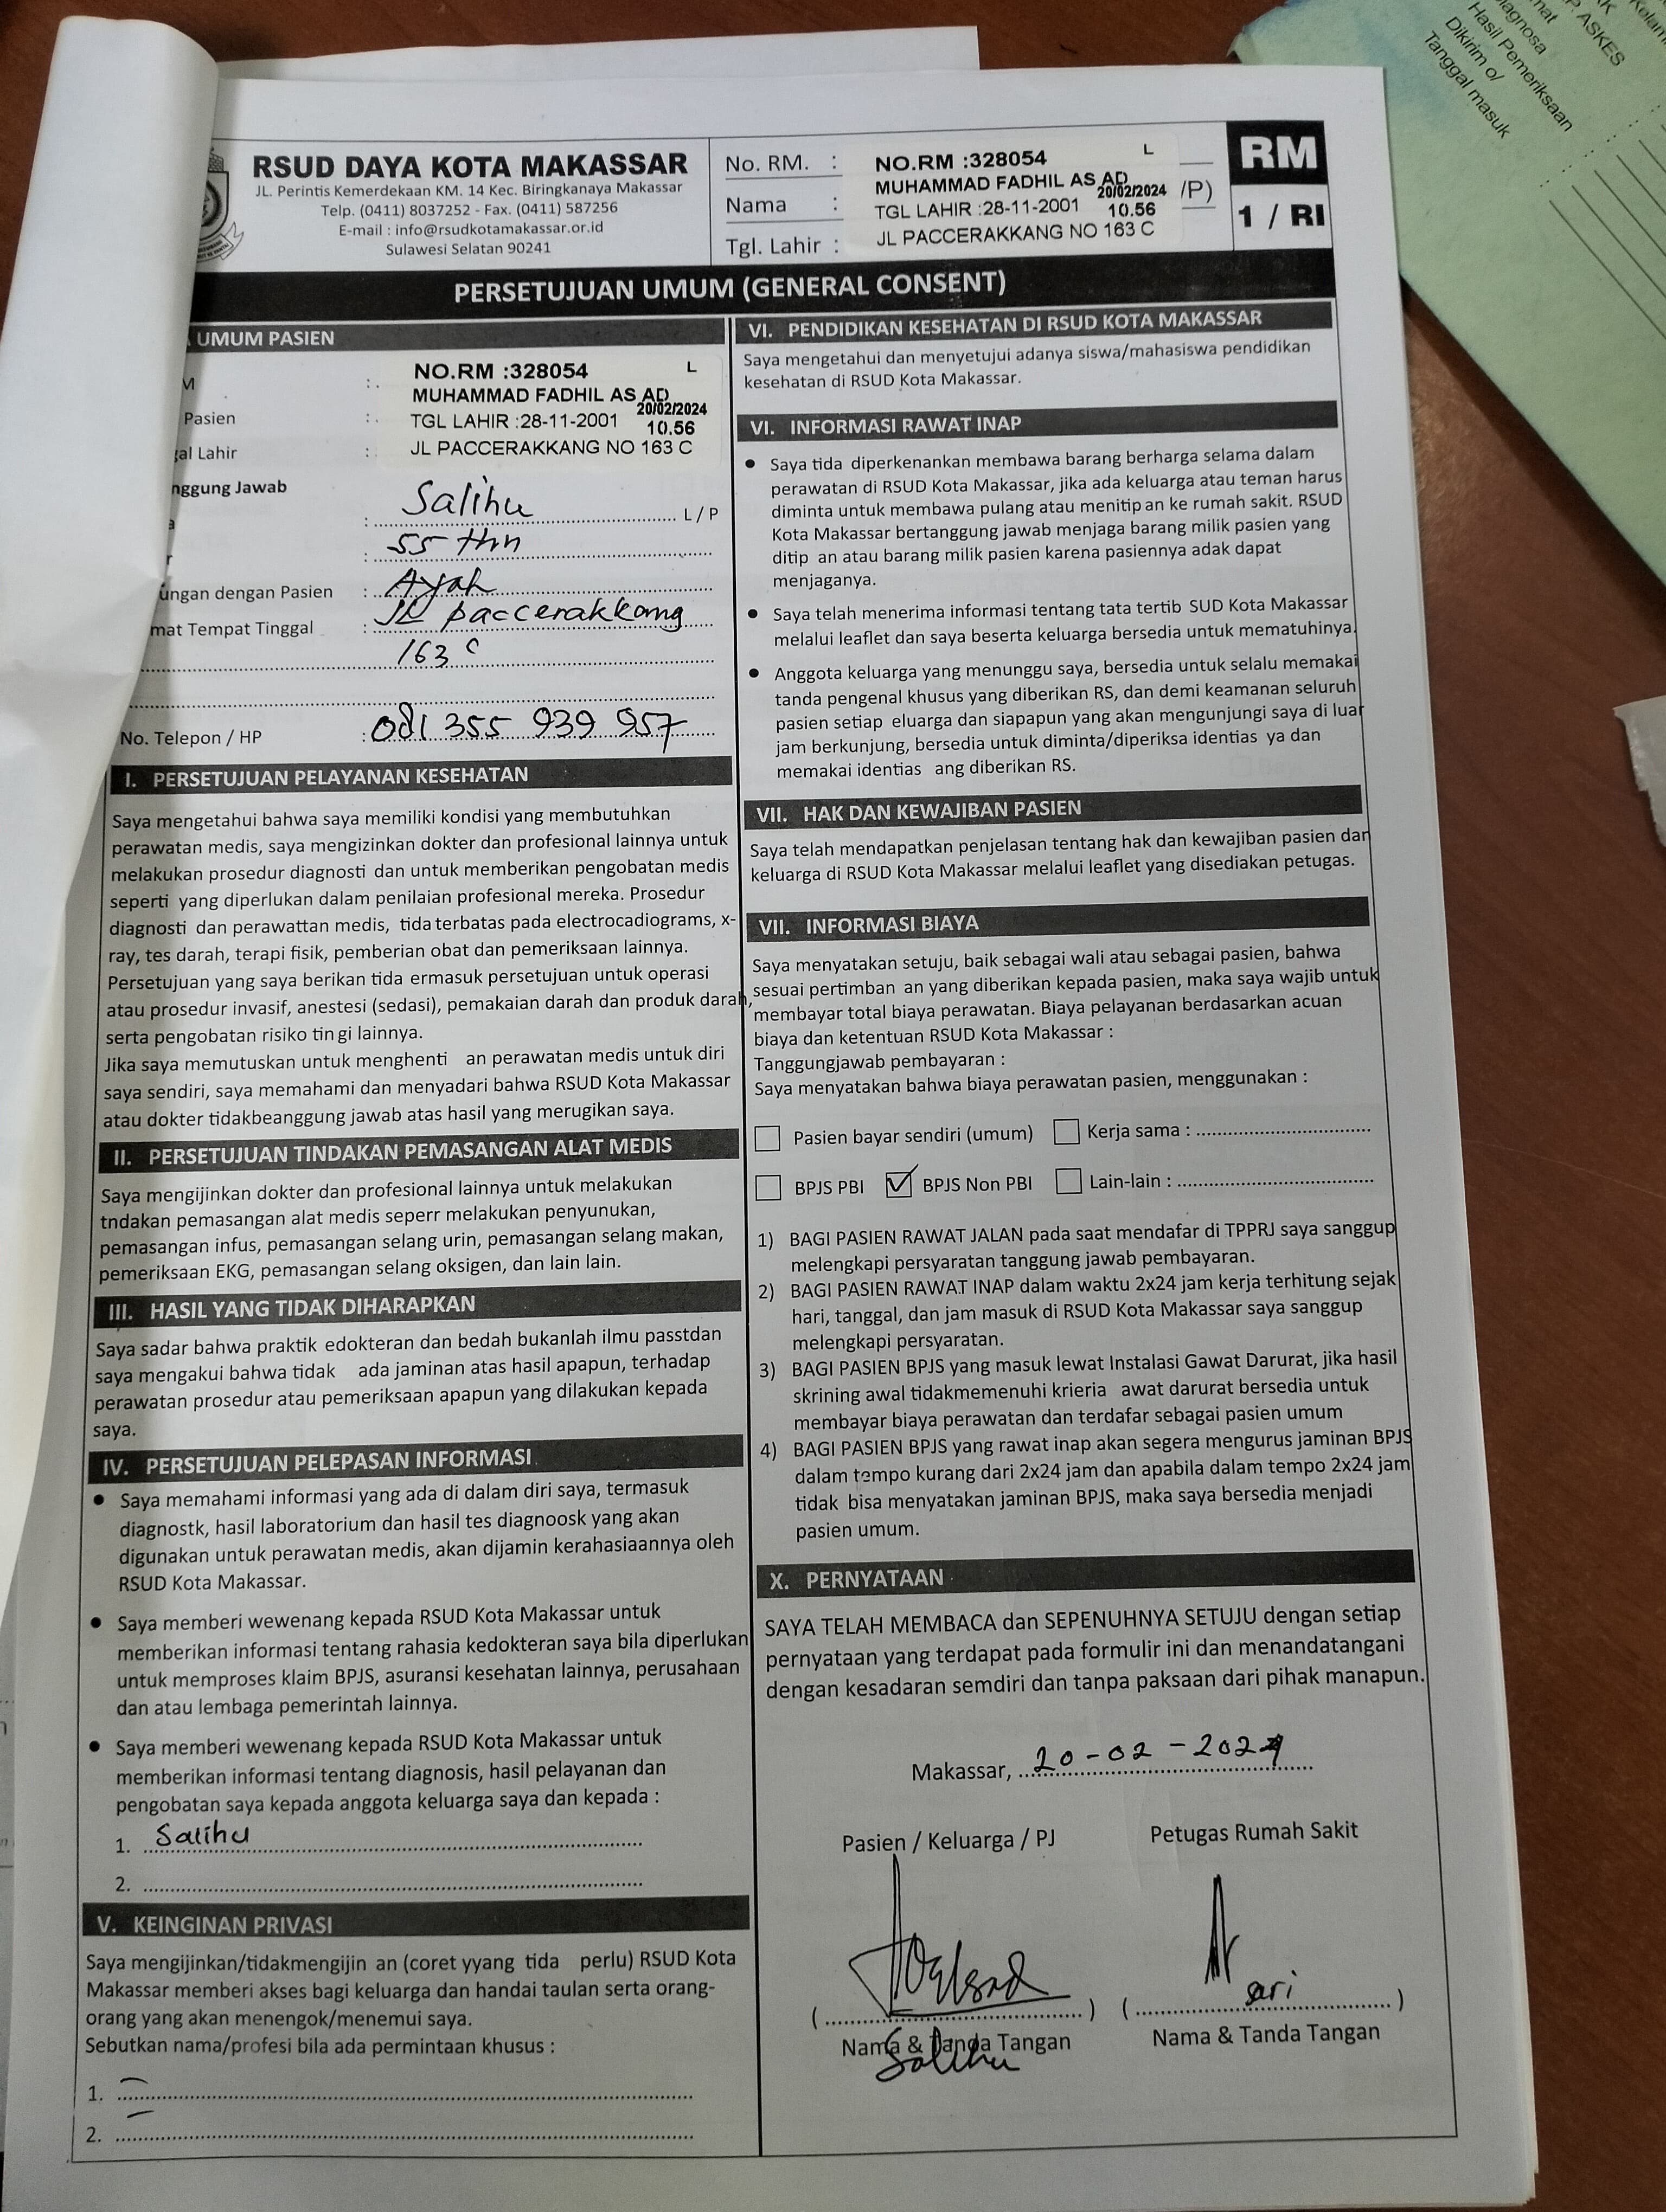 RSUD DAYA KOTA MAKASSAR
JL. Perintis Kemerdekaan KM. 14 Kec. Biringkanaya Makassar
Telp. (0411) 8037252 - Fax. (0411) 587256
E-mail : info@rsudkotamakassar.or.id
Sulawesi Selatan 90241
No. RM. :
Nama :
Tgl. Lahir :
NO.RM :328054 L
MUHAMMAD FADHIL AS AD
20/02/2024
TGL LAHIR :28-11-2001 10.56
JL PACCERAKKANG NO 163 C
/P)
RM
1 / RI
PERSETUJUAN UMUM (GENERAL CONSENT)
UMUM PASIEN
M :.
Pasien :.
gal Lahir :
NO.RM :328054 L
MUHAMMAD FADHIL AS AD
20/02/2024
TGL LAHIR :28-11-2001 10.56
JL PACCERAKKANG NO 163 C
nggung Jawab
a : Salihu L / P
r : 55 thn
ungan dengan Pasien : Ayah
mat Tempat Tinggal : JL paccerakkang
163 C
No. Telepon / HP : 081 355 939 957
I. PERSETUJUAN PELAYANAN KESEHATAN
Saya mengetahui bahwa saya memiliki kondisi yang membutuhkan
perawatan medis, saya mengizinkan dokter dan profesional lainnya untuk
melakukan prosedur diagnosti dan untuk memberikan pengobatan medis
seperti yang diperlukan dalam penilaian profesional mereka. Prosedur
diagnosti dan perawattan medis, tida terbatas pada electrocadiograms, x-
ray, tes darah, terapi fisik, pemberian obat dan pemeriksaan lainnya.
Persetujuan yang saya berikan tida ermasuk persetujuan untuk operasi
atau prosedur invasif, anestesi (sedasi), pemakaian darah dan produk darah,
serta pengobatan risiko tin gi lainnya.
Jika saya memutuskan untuk menghenti an perawatan medis untuk diri
saya sendiri, saya memahami dan menyadari bahwa RSUD Kota Makassar
atau dokter tidakbeanggung jawab atas hasil yang merugikan saya.
II. PERSETUJUAN TINDAKAN PEMASANGAN ALAT MEDIS
Saya mengijinkan dokter dan profesional lainnya untuk melakukan
tndakan pemasangan alat medis seperr melakukan penyunukan,
pemasangan infus, pemasangan selang urin, pemasangan selang makan,
pemeriksaan EKG, pemasangan selang oksigen, dan lain lain.
III. HASIL YANG TIDAK DIHARAPKAN
Saya sadar bahwa praktik edokteran dan bedah bukanlah ilmu passtdan
saya mengakui bahwa tidak ada jaminan atas hasil apapun, terhadap
perawatan prosedur atau pemeriksaan apapun yang dilakukan kepada
saya.
IV. PERSETUJUAN PELEPASAN INFORMASI
• Saya memahami informasi yang ada di dalam diri saya, termasuk
diagnostk, hasil laboratorium dan hasil tes diagnoosk yang akan
digunakan untuk perawatan medis, akan dijamin kerahasiaannya oleh
RSUD Kota Makassar.
• Saya memberi wewenang kepada RSUD Kota Makassar untuk
memberikan informasi tentang rahasia kedokteran saya bila diperlukan
untuk memproses klaim BPJS, asuransi kesehatan lainnya, perusahaan
dan atau lembaga pemerintah lainnya.
• Saya memberi wewenang kepada RSUD Kota Makassar untuk
memberikan informasi tentang diagnosis, hasil pelayanan dan
pengobatan saya kepada anggota keluarga saya dan kepada :
1. Salihu
2.
V. KEINGINAN PRIVASI
Saya mengijinkan/tidakmengijin an (coret yyang tida perlu) RSUD Kota
Makassar memberi akses bagi keluarga dan handai taulan serta orang-
orang yang akan menengok/menemui saya.
Sebutkan nama/profesi bila ada permintaan khusus :
1. –
2. –
VI. PENDIDIKAN KESEHATAN DI RSUD KOTA MAKASSAR
Saya mengetahui dan menyetujui adanya siswa/mahasiswa pendidikan
kesehatan di RSUD Kota Makassar.
VI. INFORMASI RAWAT INAP
• Saya tida diperkenankan membawa barang berharga selama dalam
perawatan di RSUD Kota Makassar, jika ada keluarga atau teman harus
diminta untuk membawa pulang atau menitip an ke rumah sakit. RSUD
Kota Makassar bertanggung jawab menjaga barang milik pasien yang
ditip an atau barang milik pasien karena pasiennya adak dapat
menjaganya.
• Saya telah menerima informasi tentang tata tertib SUD Kota Makassar
melalui leaflet dan saya beserta keluarga bersedia untuk mematuhinya.
• Anggota keluarga yang menunggu saya, bersedia untuk selalu memakai
tanda pengenal khusus yang diberikan RS, dan demi keamanan seluruh
pasien setiap eluarga dan siapapun yang akan mengunjungi saya di luar
jam berkunjung, bersedia untuk diminta/diperiksa identias ya dan
memakai identias ang diberikan RS.
VII. HAK DAN KEWAJIBAN PASIEN
Saya telah mendapatkan penjelasan tentang hak dan kewajiban pasien dan
keluarga di RSUD Kota Makassar melalui leaflet yang disediakan petugas.
VII. INFORMASI BIAYA
Saya menyatakan setuju, baik sebagai wali atau sebagai pasien, bahwa
sesuai pertimban an yang diberikan kepada pasien, maka saya wajib untuk
membayar total biaya perawatan. Biaya pelayanan berdasarkan acuan
biaya dan ketentuan RSUD Kota Makassar :
Tanggungjawab pembayaran :
Saya menyatakan bahwa biaya perawatan pasien, menggunakan :
☐ Pasien bayar sendiri (umum) ☐ Kerja sama :
☐ BPJS PBI ☑ BPJS Non PBI ☐ Lain-lain :
1) BAGI PASIEN RAWAT JALAN pada saat mendafar di TPPRJ saya sanggup
melengkapi persyaratan tanggung jawab pembayaran.
2) BAGI PASIEN RAWAT INAP dalam waktu 2x24 jam kerja terhitung sejak
hari, tanggal, dan jam masuk di RSUD Kota Makassar saya sanggup
melengkapi persyaratan.
3) BAGI PASIEN BPJS yang masuk lewat Instalasi Gawat Darurat, jika hasil
skrining awal tidakmemenuhi krieria awat darurat bersedia untuk
membayar biaya perawatan dan terdafar sebagai pasien umum
4) BAGI PASIEN BPJS yang rawat inap akan segera mengurus jaminan BPJS
dalam tempo kurang dari 2x24 jam dan apabila dalam tempo 2x24 jam
tidak bisa menyatakan jaminan BPJS, maka saya bersedia menjadi
pasien umum.
X. PERNYATAAN
SAYA TELAH MEMBACA dan SEPENUHNYA SETUJU dengan setiap
pernyataan yang terdapat pada formulir ini dan menandatangani
dengan kesadaran semdiri dan tanpa paksaan dari pihak manapun.
Makassar, 20-02-2024
Pasien / Keluarga / PJ
Petugas Rumah Sakit
sari
Nama & Tanda Tangan
Salihu
Nama & Tanda Tangan
ASKES
Hasil Pemeriksaan
Dikirim o/
Tanggal masuk